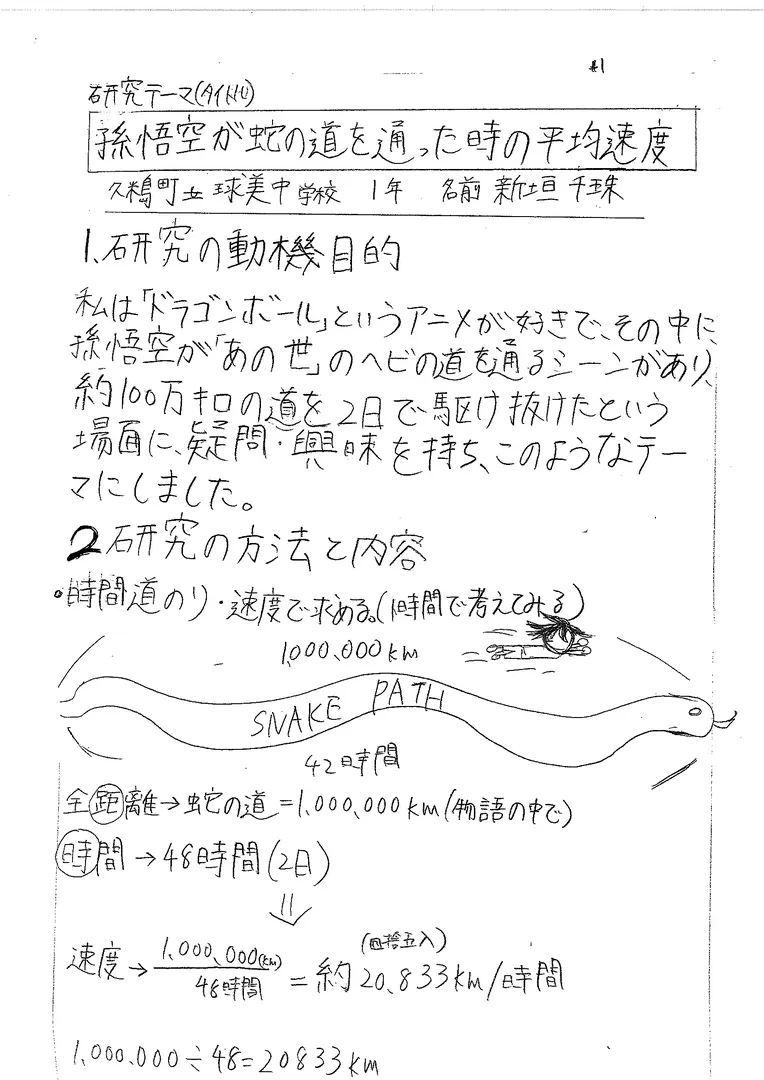 #1
研究テーマ(タイトル)
孫悟空が蛇の道を通った時の平均速度
久米島町立 球美中学校 1年 名前 新垣 千珠
1、研究の動機目的
私は「ドラゴンボール」というアニメが好きで、その中に、
孫悟空が「あの世」のヘビの道を通るシーンがあり、
約100万キロの道を2日で駆け抜けたという
場面に、疑問・興味を持ち、このようなテー
マにしました。
2 研究の方法と内容
・時間道のり・速度で求める。(1時間で考えてみる)
1,000,000km
SNAKE PATH
42時間
全距離→蛇の道=1,000,000km(物語の中で)
時間→48時間(2日)
速度→1,000,000(km)/48時間=約20,833km/時間 (四捨五入)
1,000,000÷48=20833km